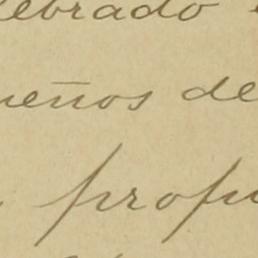 lebrado
ueños de
propu